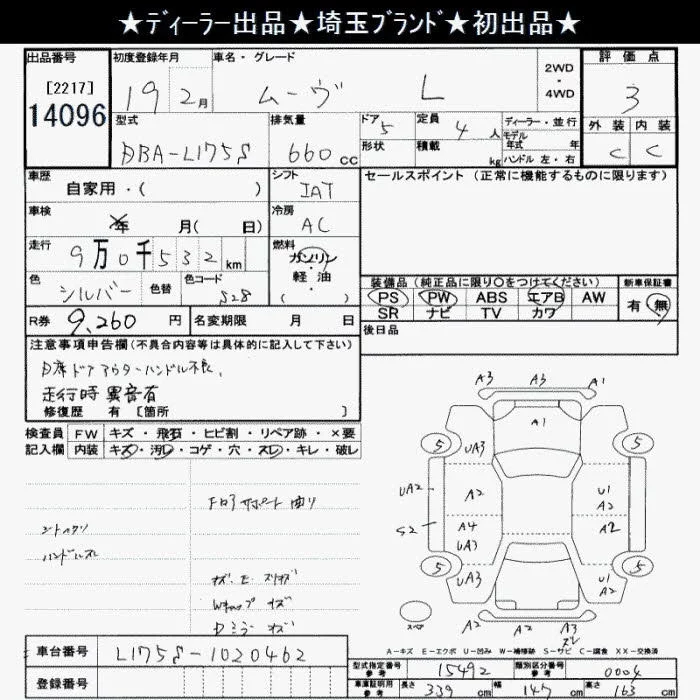 ★ディーラー出品★埼玉ブランド★初出品★
出品番号 初度登録年月 車名・グレード 2WD・4WD 評価点
[2217] 19 2月 ムーヴ L 3
14096 型式 排気量 ドア 定員 ディーラー・並行 外装 内装
DBA-L175S 660cc 5 4人 モデル年式 年 C C
形状 積載 kg ハンドル 左・右
車歴 シフト セールスポイント(正常に機能するものに限ります)
自家用・( ) IAT
車検 年 月( 日) 冷房 AC
走行 9万0千532km 燃料 ガソリン・軽油 ( )
色 シルバー 色替 色コード S28
装備品(純正品に限り○をつけてください) 新車保証書
PS PW ABS エアB AW 有 無
SR ナビ TV カワ
R券 9,260円 名変期限 月 日 後日品
注意事項申告欄(不具合内容等は具体的に記入して下さい)
D席ドアアウターハンドル不良、
走行時異音有
修復歴 有 [箇所 ]
検査員 FW キズ・飛石・ヒビ割・リペア跡・×要
記入欄 内装 キズ・汚レ・コゲ・穴・スレ・キレ・破レ
A3 A3 A1
A1
5 5
UA3
UA2 A2 U1
A2
S2 A4 A2
UA3
5 5
UA3 U1
A2
A2 A2 A3
スペア
コアサポート曲り
シートヘタリ
ハンドルスレ
Wチップ キズ
Dミラー キズ
A-キズ E-エクボ U-凹み W-補修跡 S-サビ C-腐食 XX-交換済
車台番号 L175S-1020462
登録番号
型式指定番号 参考 15492 類別区分番号 参考 0004
車庫証明用 参考 長さ 339cm 幅 147cm 高さ 163cm